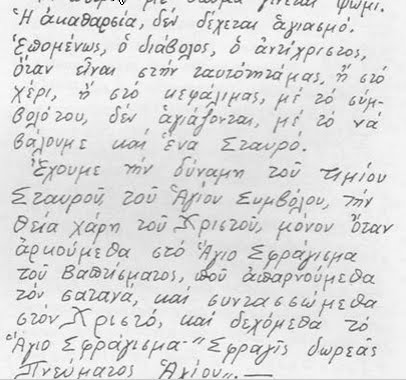 θαῦμα γίνεται ψωμί.
Ἡ ἀκαθαρσία, δέν δέχεται ἁγιασμό.
Ἑπομένως, ὁ διάβολος, ὁ ἀντίχριστος,
ὅταν εἶναι στήν ταυτότητάμας, ἤ στό
χέρι, ἤ στό κεφάλιμας, μέ τό σύμ-
βολότου, δέν ἁγιάζονται, μέ τό νά
βάλουμε καί ἕνα Σταυρό.
Ἔχουμε τήν δύναμη τοῦ τιμίου
Σταυροῦ, τοῦ Ἁγίου Συμβόλου, τήν
θεία χάρη τοῦ Χριστοῦ, μόνον ὅταν
ἀρκούμεθα στό Ἅγιο Σφράγισμα
τοῦ Βαπτίσματος, ποῦ ἀπαρνούμεθα
τόν σατανᾶ, καί συντασσώμεθα
στόν Χριστό, καί δεχόμεθα τό
Ἅγιο Σφράγισμα-"Σφραγίς δωρεᾶς
Πνεύματος Ἁγίου,,.—